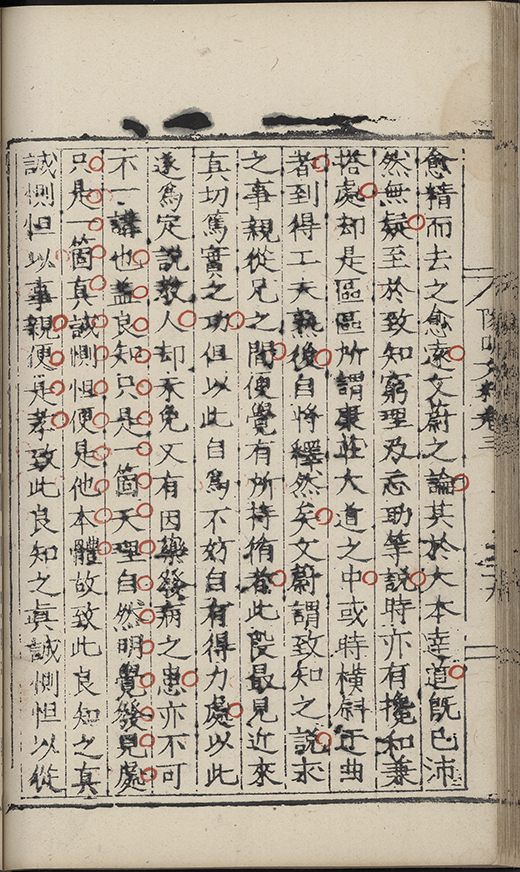 愈精而去之愈遠文蔚之論其於大本達道既已沛
然無疑至於致知窮理及忘助等說時亦有攙和兼
搭處却是區區所謂康莊大道之中或時橫斜迂曲
者到得工夫熟後自將釋然矣文蔚謂致知之說求
之事親從兄之間便覺有所持循者此段最見近來
真切篤實之功但以此自爲不妨自有得力處以此
遂爲定說教人却未免又有因藥發病之患亦不可
不一講也盖良知只是一箇天理自然明覺發見處
只是一箇真誠惻怛便是他本體故致此良知之真
誠惻怛以事親便是孝致此良知之眞誠惻怛以從
陽明文粹卷三